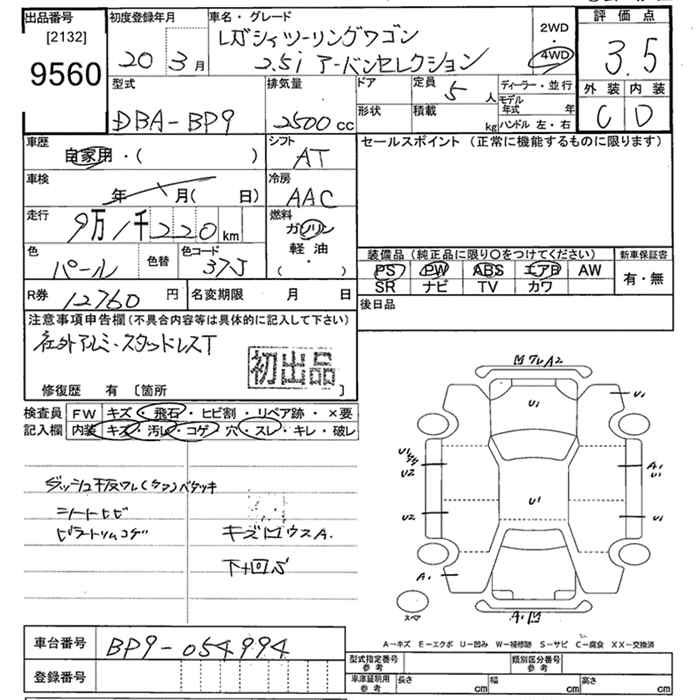 出品番号
[2132]
9560
初度登録年月
20年 3月
車名・グレード
レガシィツーリングワゴン
2.5i アーバンセレクション
2WD
・
4WD
評価点
3.5
外装 内装
C D
型式
DBA-BP9
排気量
2500 cc
ドア
形状
定員
5 人
積載
kg
ディーラー・並行
モデル年式 年
ハンドル 左・右
車歴
自家用・( )
シフト
AT
セールスポイント (正常に機能するものに限ります)
車検
年 月( 日)
冷房
AAC
走行
9万1千220km
燃料
ガソリン
軽油
・
( )
色
パール
色替
色コード
37J
装備品 (純正品に限り○をつけてください)
新車保証書
PS PW ABS エアB AW
SR ナビ TV カワ
有・無
R券 12760 円
名変期限 月 日
後日品
注意事項申告欄(不具合内容等は具体的に記入して下さい)
社外アルミ・スタッドレスT
初出品
修復歴 有 [箇所 ]
検査員 FW キズ・飛石・ヒビ割・リペア跡・×要
記入欄 内装 キズ・汚レ・コゲ・穴・スレ・キレ・破レ
シートヒビ
下廻り
U1
U1
U2
U2
A1
U1
U1
U1
U1
A1
スペア
A-キズ E-エクボ U-凹み W-補修跡 S-サビ C-腐食 XX-交換済
車台番号 BP9-054994
登録番号
型式指定番号 参考
類別区分番号 参考
車庫証明用 参考
長さ cm 幅 cm 高さ cm